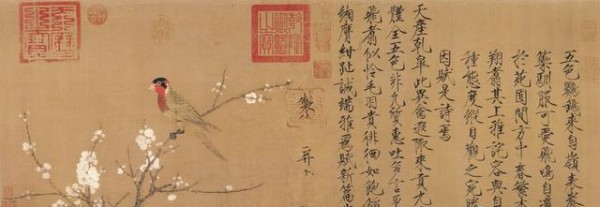 五色鸚鵡來自嶺表養
籞馴服可愛飛鳴自適
於苑囿間方中春繁杏
翔翥其上雅詫容與自
種態度縱目觀之宛勝
因賦是詩焉
天產乾皋此異禽遐陬來貢九
體全五色非凡質惠吐多言更
飛翥似怜毛羽貴徘徊如飽稻
緗膺紺趾誠端雅為賦新篇步
製
并